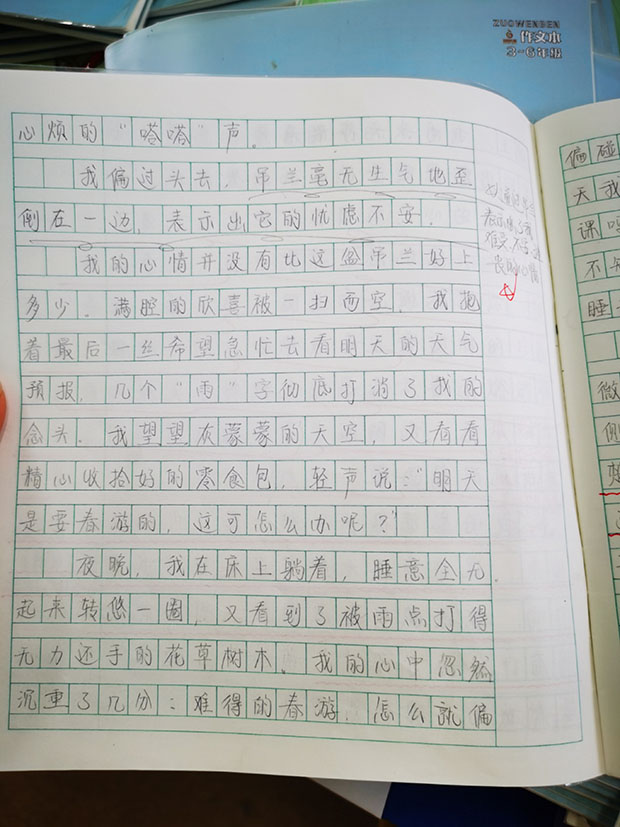 ZUOWENBEN
作文本
3-6年级
心烦的“嗒嗒”声。
我偏过头去，吊兰毫无生气地歪
倒在一边，表示出它的忧虑不安。
我的心情并没有比这盆吊兰好上
多少。满腔的欣喜被一扫而空，我抱
着最后一丝希望急忙去看明天的天气
预报，几个“雨”字彻底打消了我的
念头。我望望灰蒙蒙的天空，又看看
精心收拾好的零食包，轻声说：“明天
是要春游的，这可怎么办呢？”
夜晚，我在床上躺着，睡意全无
起来转悠一圈，又看到了被雨点打得
无力还手的花草树木。我的心中忽然
沉重了几分：难得的春游，怎么就偏
偏碰
天我
课吗
不知
睡一
微
侧
想